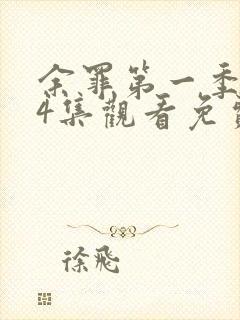 余罪第一季
4集觀看免
徐飛